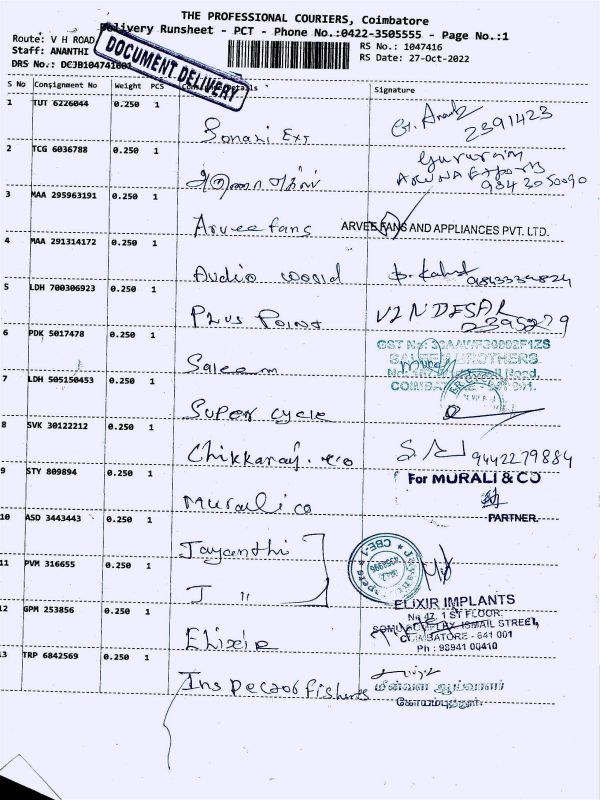 THE PROFESSIONAL COURIERS, Coimbatore
Delivery Runsheet - PCT - Phone No.:0422-3505555 - Page No.:1
Route: V H ROAD
Staff: ANANTHI
DRS No.: DCJB104741601
DOCUMENT DELIVERY
RS No.: 1047416
RS Date: 27-Oct-2022
S No Consignment No Weight PCS Consignee Details Signature
1 TUT 6226044 0.250 1 Sonari Ext 2391423
2 TCG 6036788 0.250 1 Gururam
ARUNA Exports
9843050090
3 MAA 295963191 0.250 1 Arvee fans ARVEE FANS AND APPLIANCES PVT. LTD.
4 MAA 291314172 0.250 1 Audio world
5 LDH 700306923 0.250 1 Plus Point VINDESAR
2395279
6 PDK 5017478 0.250 1 Saleem
7 LDH 505150453 0.250 1 Super cycle
8 SVK 30122212 0.250 1 9442279884
9 STY 809894 0.250 1 Murali co For MURALI & CO
PARTNER.
10 ASD 3443443 0.250 1 Jayanthi
11 PVM 316655 0.250 1 J "
12 GPM 253856 0.250 1 Elixir ELIXIR IMPLANTS
No 47, 1 ST FLOOR,
ISMAIL STREET,
COIMBATORE - 641 001
Ph : 98941 00410
13 TRP 6842569 0.250 1 Inspector fishers மீன்வள ஆய்வாளர்
கோயம்புத்தூர்